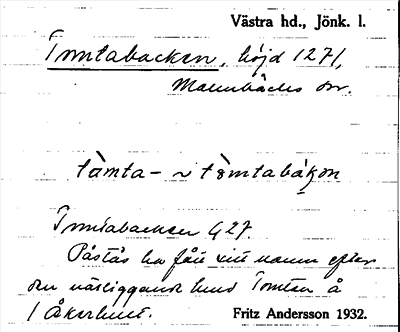 Västra hd., Jönk. l.
Tomtabacken, höjd 1271,
Malmbäcks sn.
tàmta- ~ tòmtabákən
Tomtabacken G 27.
Påstås ha fått sitt namn efter
den närliggande lund Tomten å
/ Åkerlund.
Fritz Andersson 1932.